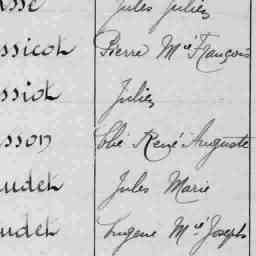 sse Jules Julien
ssicot Pierre Mie François
ssiot Julien
sson Elie René Auguste
udet Jules Marie
udet Eugene Mie Joseph